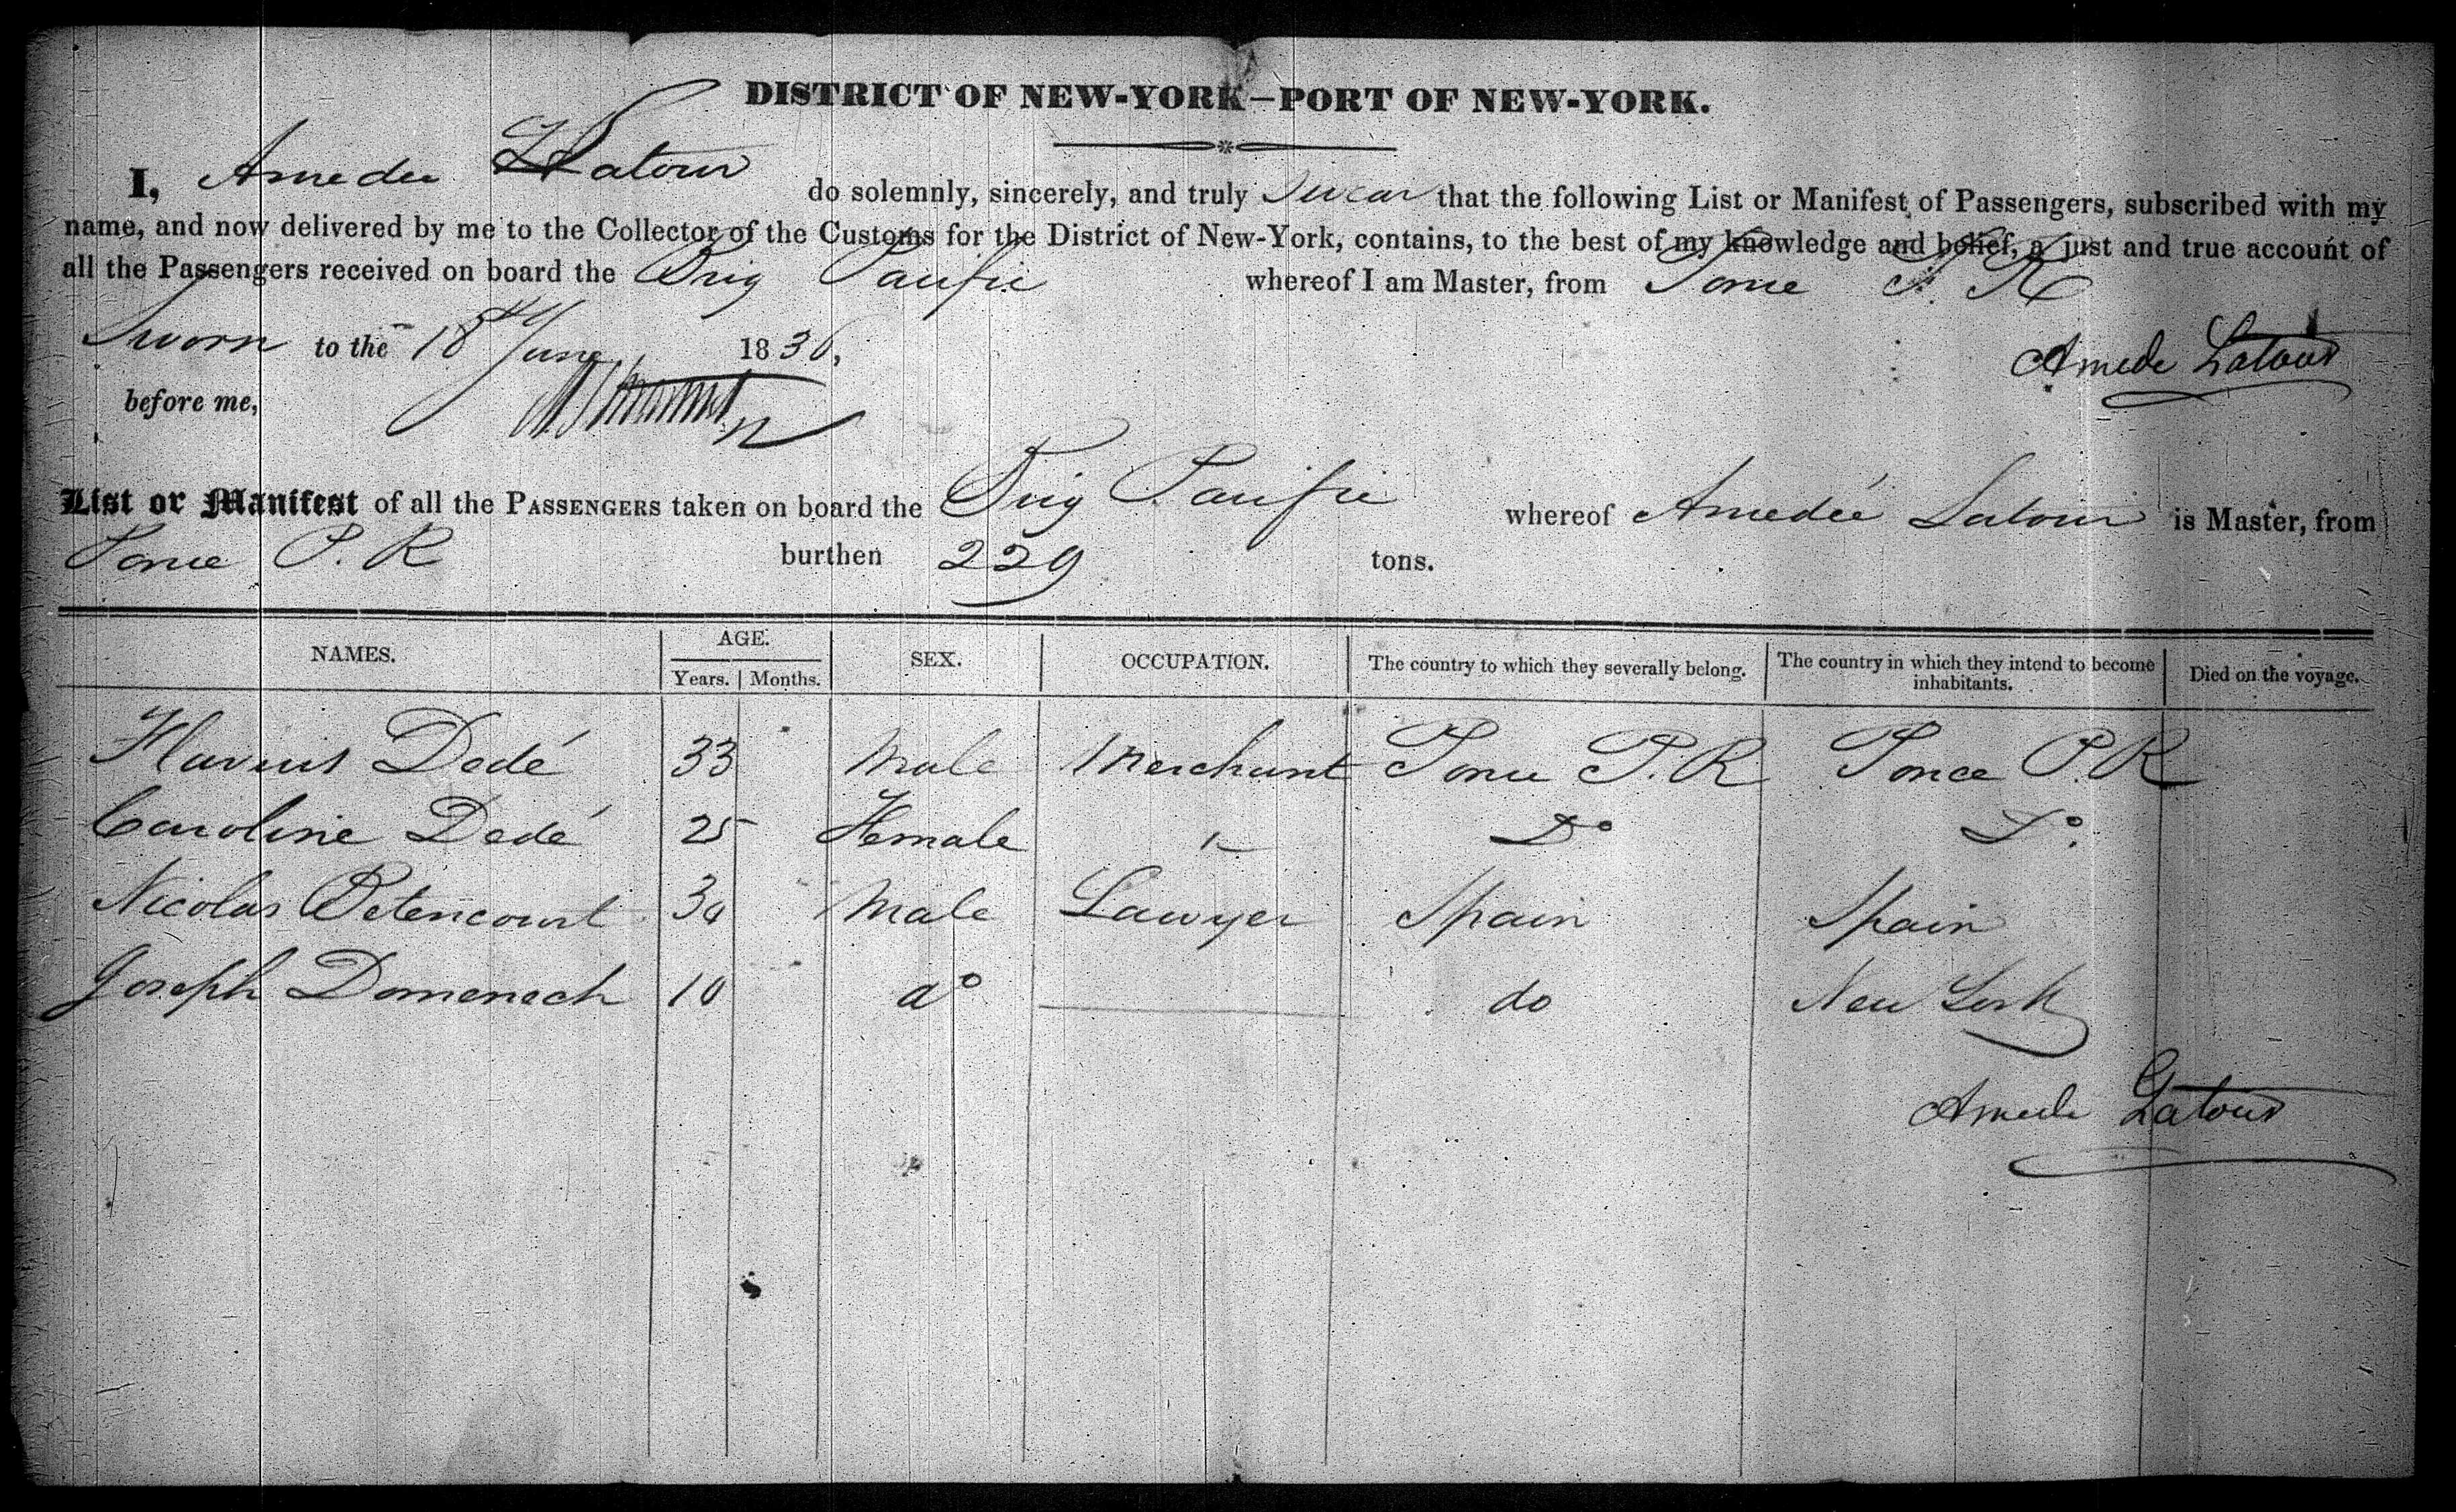 DISTRICT OF NEW-YORK—PORT OF NEW-YORK.
I, Amedee Latour do solemnly, sincerely, and truly Swear that the following List or Manifest of Passengers, subscribed with my
name, and now delivered by me to the Collector of the Customs for the District of New-York, contains, to the best of my knowledge and belief, a just and true account of
all the Passengers received on board the Brig Pacific whereof I am Master, from Ponce P. R
Sworn to the 18th June 1836,
Amede Latour
before me,
List or Manifest of all the PASSENGERS taken on board the Brig Pacific whereof Amedée Latour is Master, from
Ponce P. R burthen 229 tons.
NAMES. AGE. Years. Months. SEX. OCCUPATION. The country to which they severally belong. The country in which they intend to become inhabitants. Died on the voyage.
Flavius Dedé 33 Male Merchant Ponce P. R Ponce P. R
Caroline Dedé 25 Female " Do Do.
Nicolas Betencourt 30 Male Lawyer Spain Spain
Joseph Domenech 10 do do New York
Amede Latour